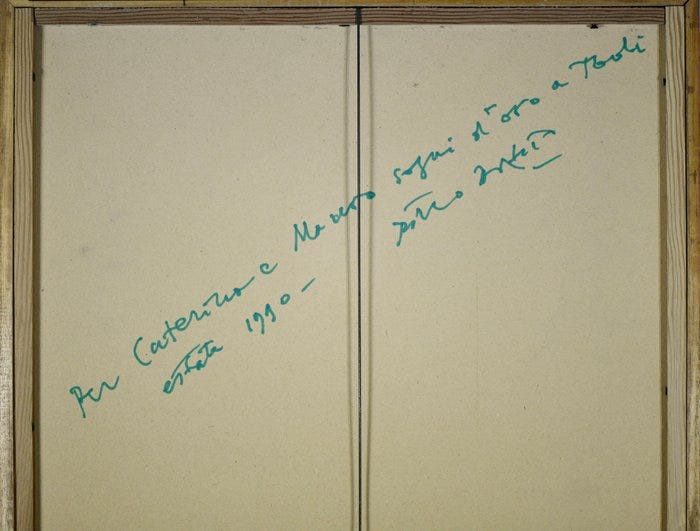 Per Caterina e Mauro sogni d'oro a Todi
estate 1990 - Piero Dorazio